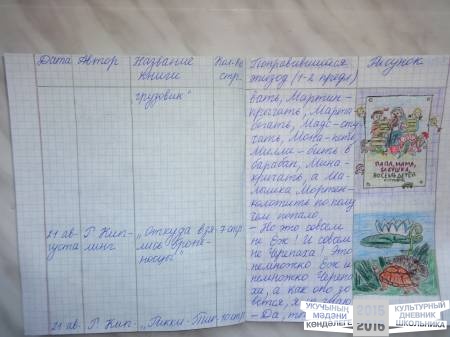 Дата Автор Название книги Кол-во стр. Понравившийся эпизод (1-2 предл) Рисунок
грузовик"
вать, Мартин -
кричать, Марта -
бегать, Мадс - сту-
чать, Мона - петь,
Милли - бить в
барабан, Мина -
кричать, а Ма-
лышка Мортен -
колотить по полу
чем попало.
ПАПА, МАМА,
БАБУШКА,
ВОСЕМЬ ДЕТЕЙ
21 ав-
густа
Р. Кип-
линг
„Откуда взя-
лись броне-
носцы"
7 стр.
- Но это совсем
не Ёж! И совсем
не Черепаха! Это
немножко Ёж и
немножко Черепа-
ха, а как оно зо-
вётся, я не знаю
- Да,
21 ав- Р. Кип- „Рикки-Тик- 10 стр.
УКУЧЫНЫҢ
МӘДӘНИ
КӨНДӘЛЕГЕ
2015
2016
КУЛЬТУРНЫЙ
ДНЕВНИК
ШКОЛЬНИКА